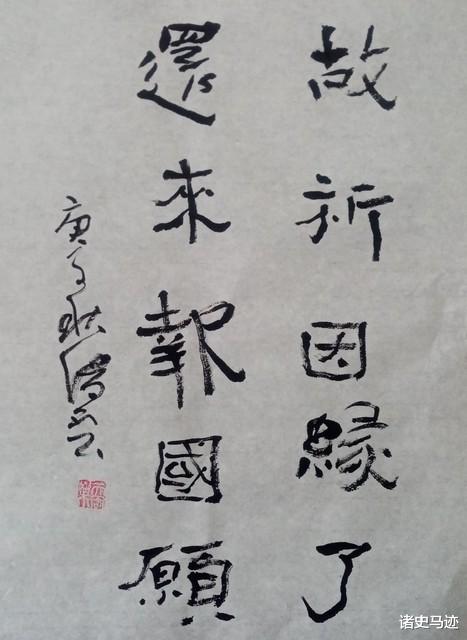 故祈因緣了
還來報國願
庚子秋
诸史马迹